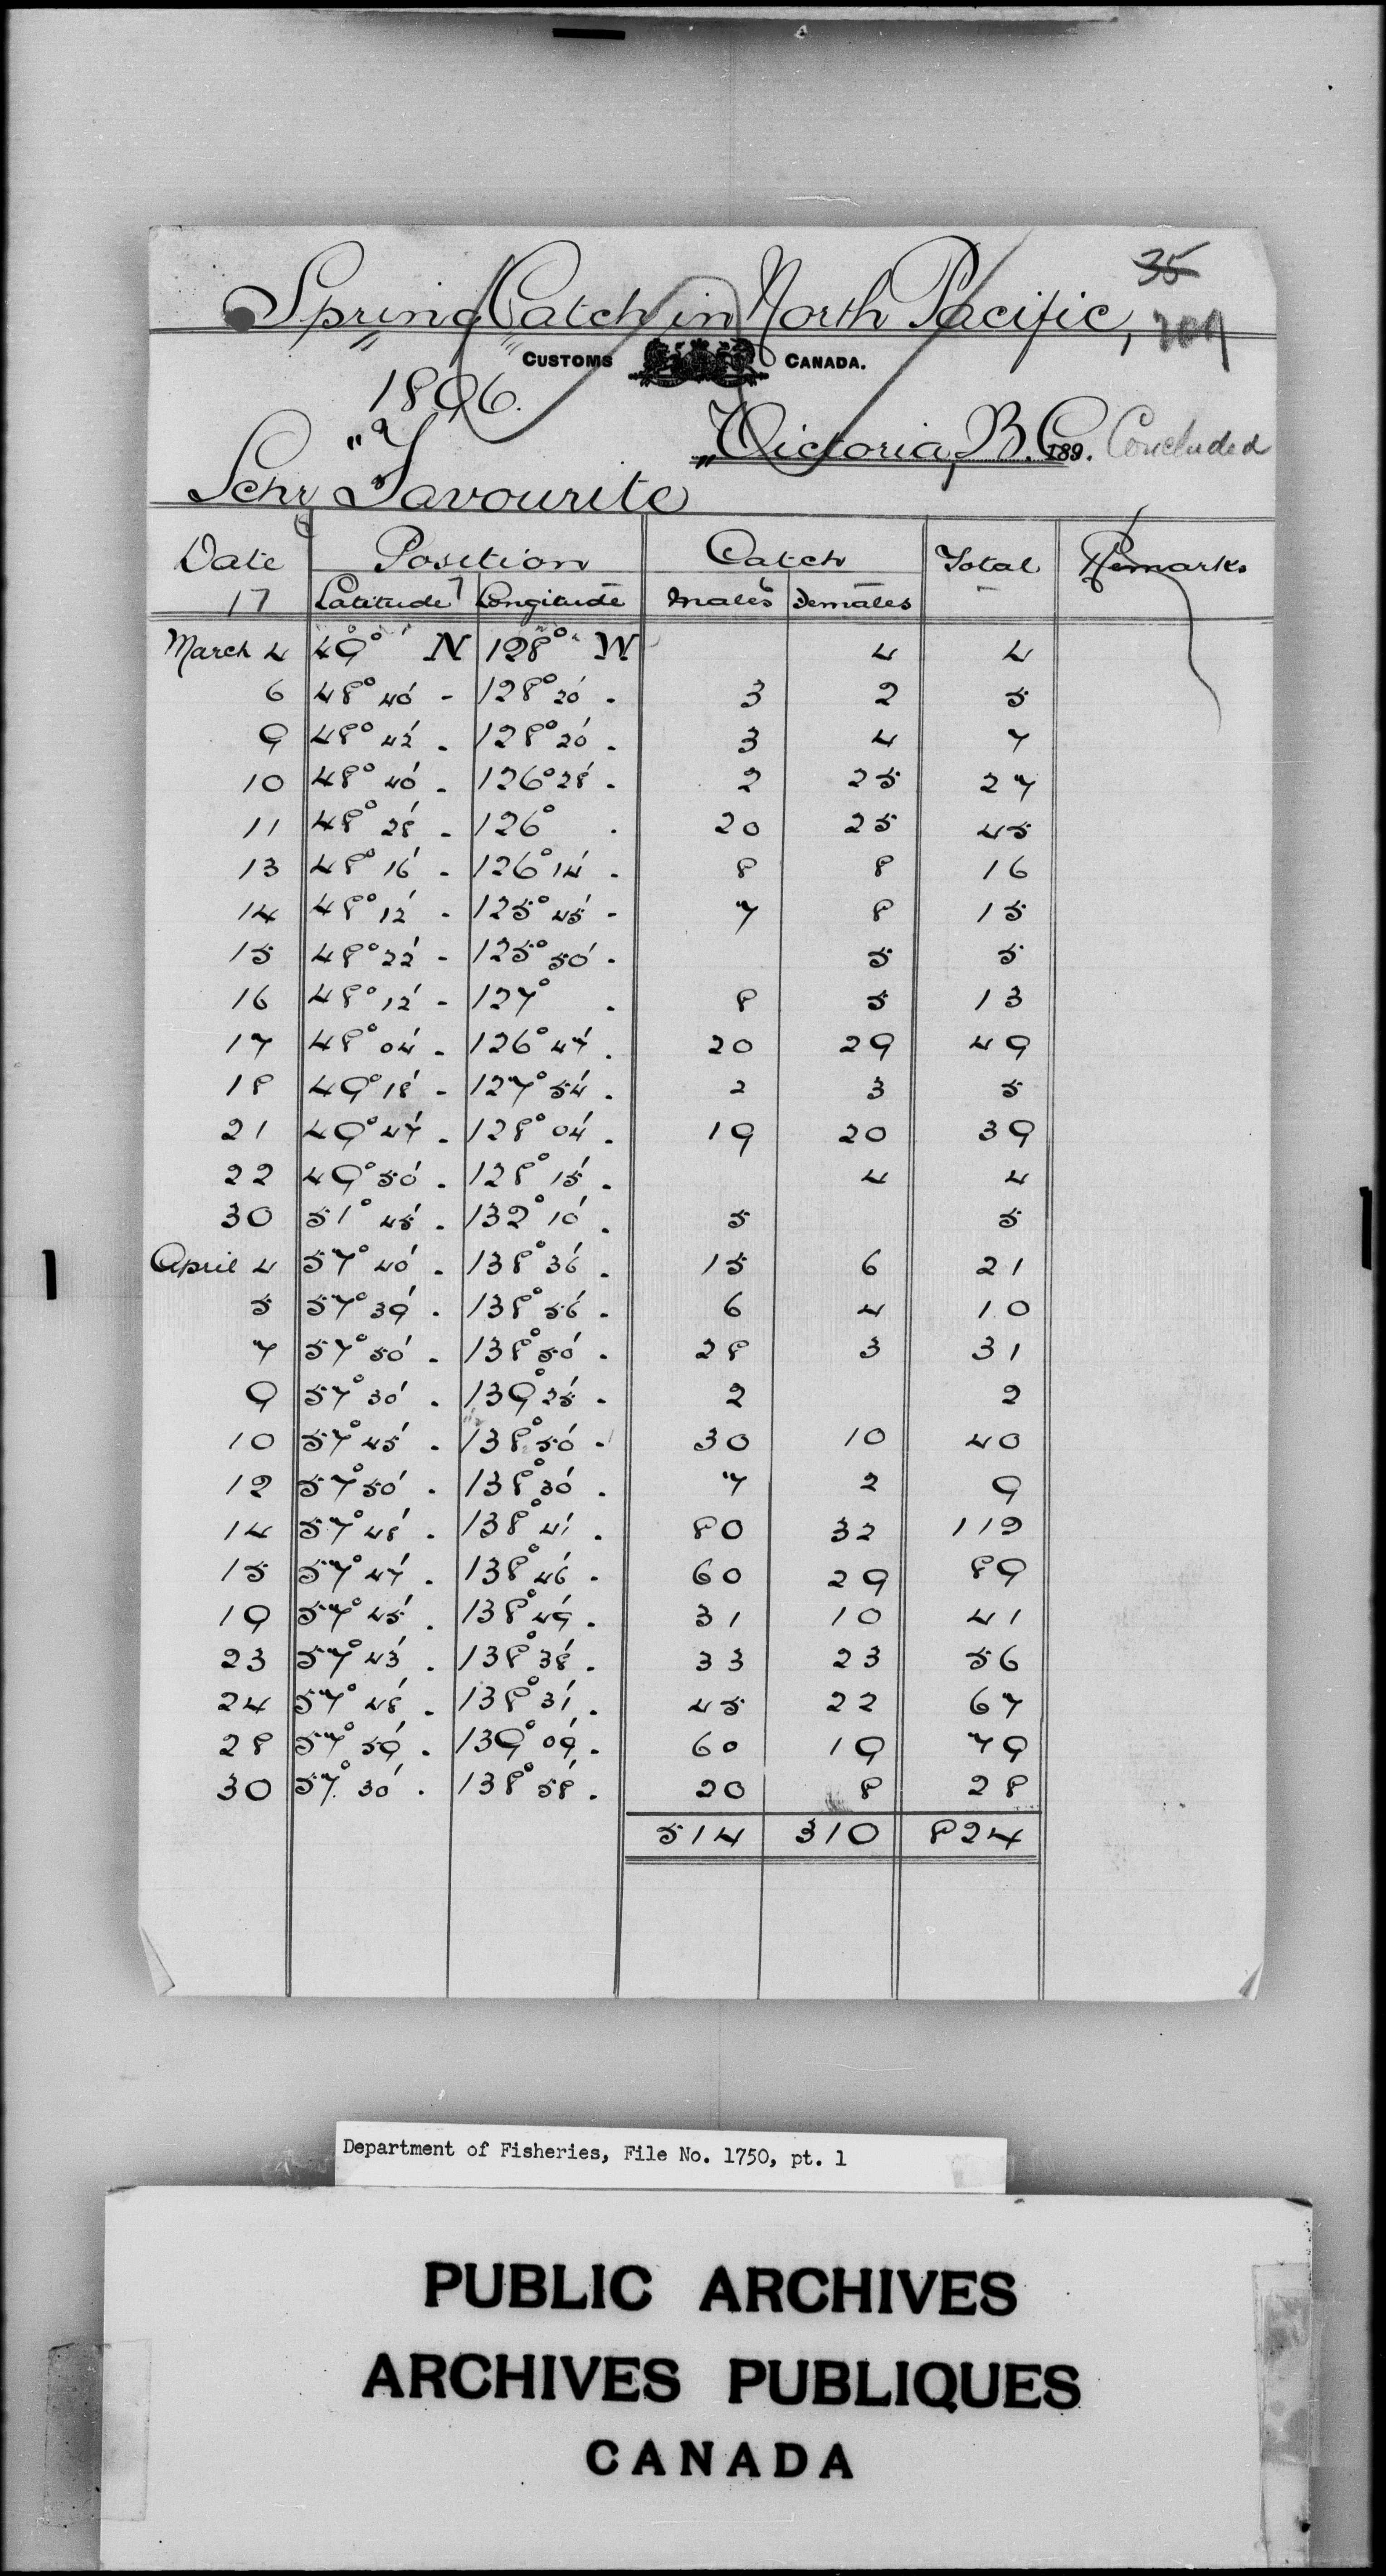 35
Spring Catch in North Pacific, 209
CUSTOMS CANADA.
1896.
Victoria, B.C. 189. Concluded
Schr "Favourite
Date Position Catch Total Remarks
17 Latitude Longitude Males Females
March 4 49° N 128° W 4 4
6 48° 40' - 128° 20' - 3 2 5
9 48° 42' - 128° 20' - 3 4 7
10 48° 40' - 126° 28' - 2 25 27
11 48° 28' - 126° - 20 25 45
13 48° 16' - 126° 14' - 8 8 16
14 48° 12' - 125° 45' - 7 8 15
15 48° 22' - 125° 50' - 5 5
16 48° 12' - 127° - 8 5 13
17 48° 04' - 126° 47' - 20 29 49
18 49° 18' - 127° 54' - 2 3 5
21 49° 47' - 128° 04' - 19 20 39
22 49° 50' - 128° 15' - 4 4
30 51° 45' - 132° 10' - 5 5
April 4 57° 40' - 138° 36' - 15 6 21
5 57° 39' - 138° 56' - 6 4 10
7 57° 50' - 138° 50' - 28 3 31
9 57° 30' - 139° 25' - 2 2
10 57° 45' - 138° 50' - 30 10 40
12 57° 50' - 138° 30' - 7 2 9
14 57° 48' - 138° 41' - 80 32 112
15 57° 47' - 138° 46' - 60 29 89
19 57° 45' - 138° 49' - 31 10 41
23 57° 43' - 138° 38' - 33 23 56
24 57° 48' - 138° 31' - 45 22 67
28 57° 59' - 139° 09' - 60 19 79
30 57° 30' - 138° 58' - 20 8 28
514 310 824
Department of Fisheries, File No. 1750, pt. 1
PUBLIC ARCHIVES
ARCHIVES PUBLIQUES
CANADA